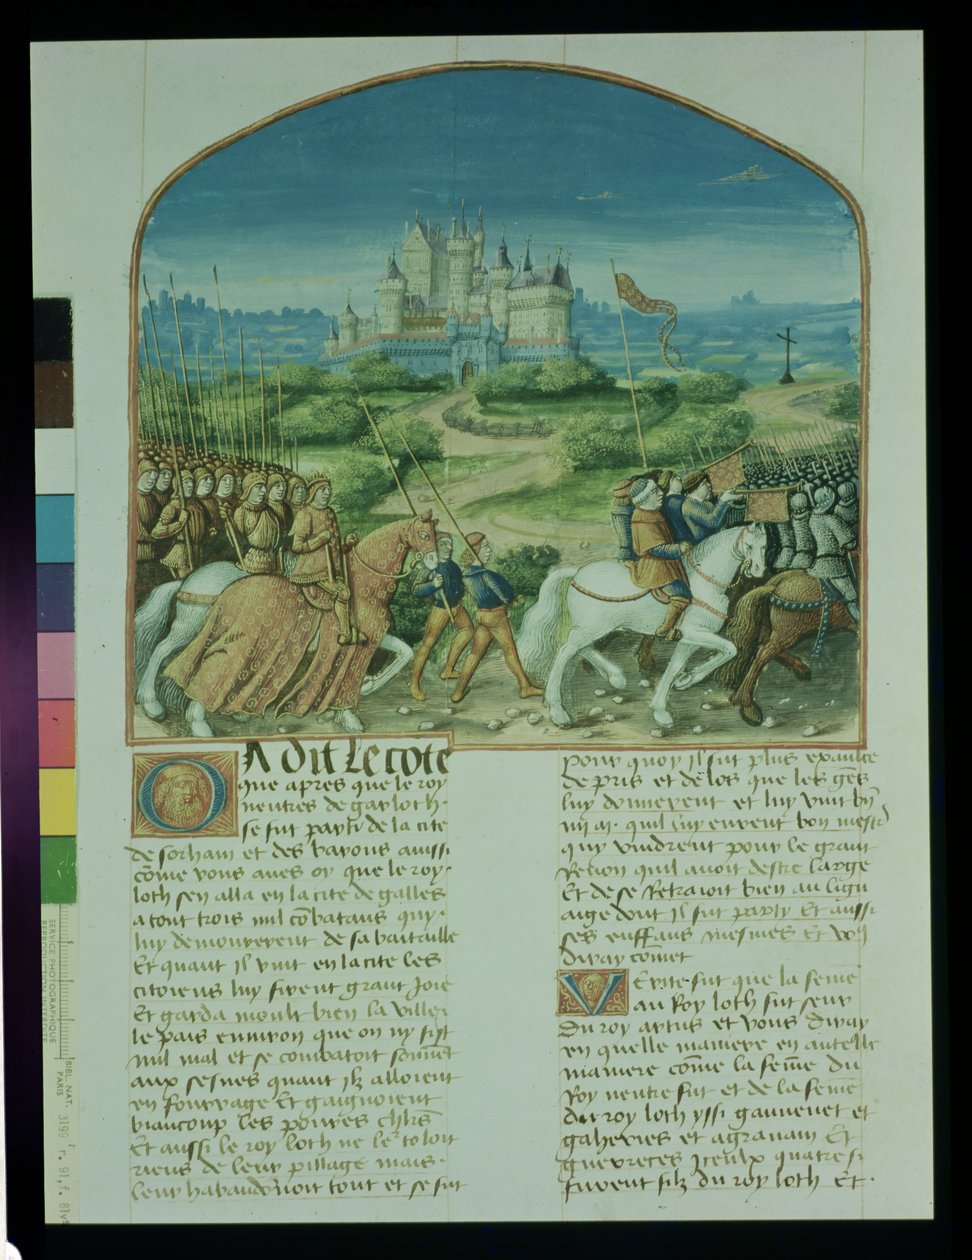 A dit le cõte
que apres que le roy
neutres de garloth
se fut parti de la cite
de sorham et des barons aussi
cõme vous aues oy que le roy
loth sen alla en la cite de galles
a tout trois mil cõbatans qui
luy demourerent de sa bataille
Et quant il vint en la cite les
citoiens luy firent grant joie
Et garda moult bien la ville
le pais enuiron que on ny fist
nul mal et se combatoit souuẽt
aux sesnes quant ilz alloient
en fourrage Et gaignoient
biaucoup les poures
Et aussi le roy loth ne le toloit
riens de leur pillage mais
leur habandonnoit tout et se fut
pour quoy il fut plus exaulce
de pris et de los que les gẽs
luy donnerent et luy vint
qui luy eurent bon mestier
quy vindrent pour le grant
Renon quil auoit destre large
Et de se Retraioit bien au lign
aige dont il fut party Et aussi
ses enffans mesmes Et vous
diray comet
Verite fut que la feme
au Roy loth fut seur
du roy artus et vous diray
en quelle maniere en autelle
maniere cõme la feme du
Roy neutre fut et de la feme
du roy loth yssi gauuenet et
gaheries et agrauain Et
guerreces iceulx quatre si
furent filz du roy loth Et
SERVICE PHOTOGRAPHIQUE
REPRODUCTION INTERDITE
BIBL. NAT.
PARIS